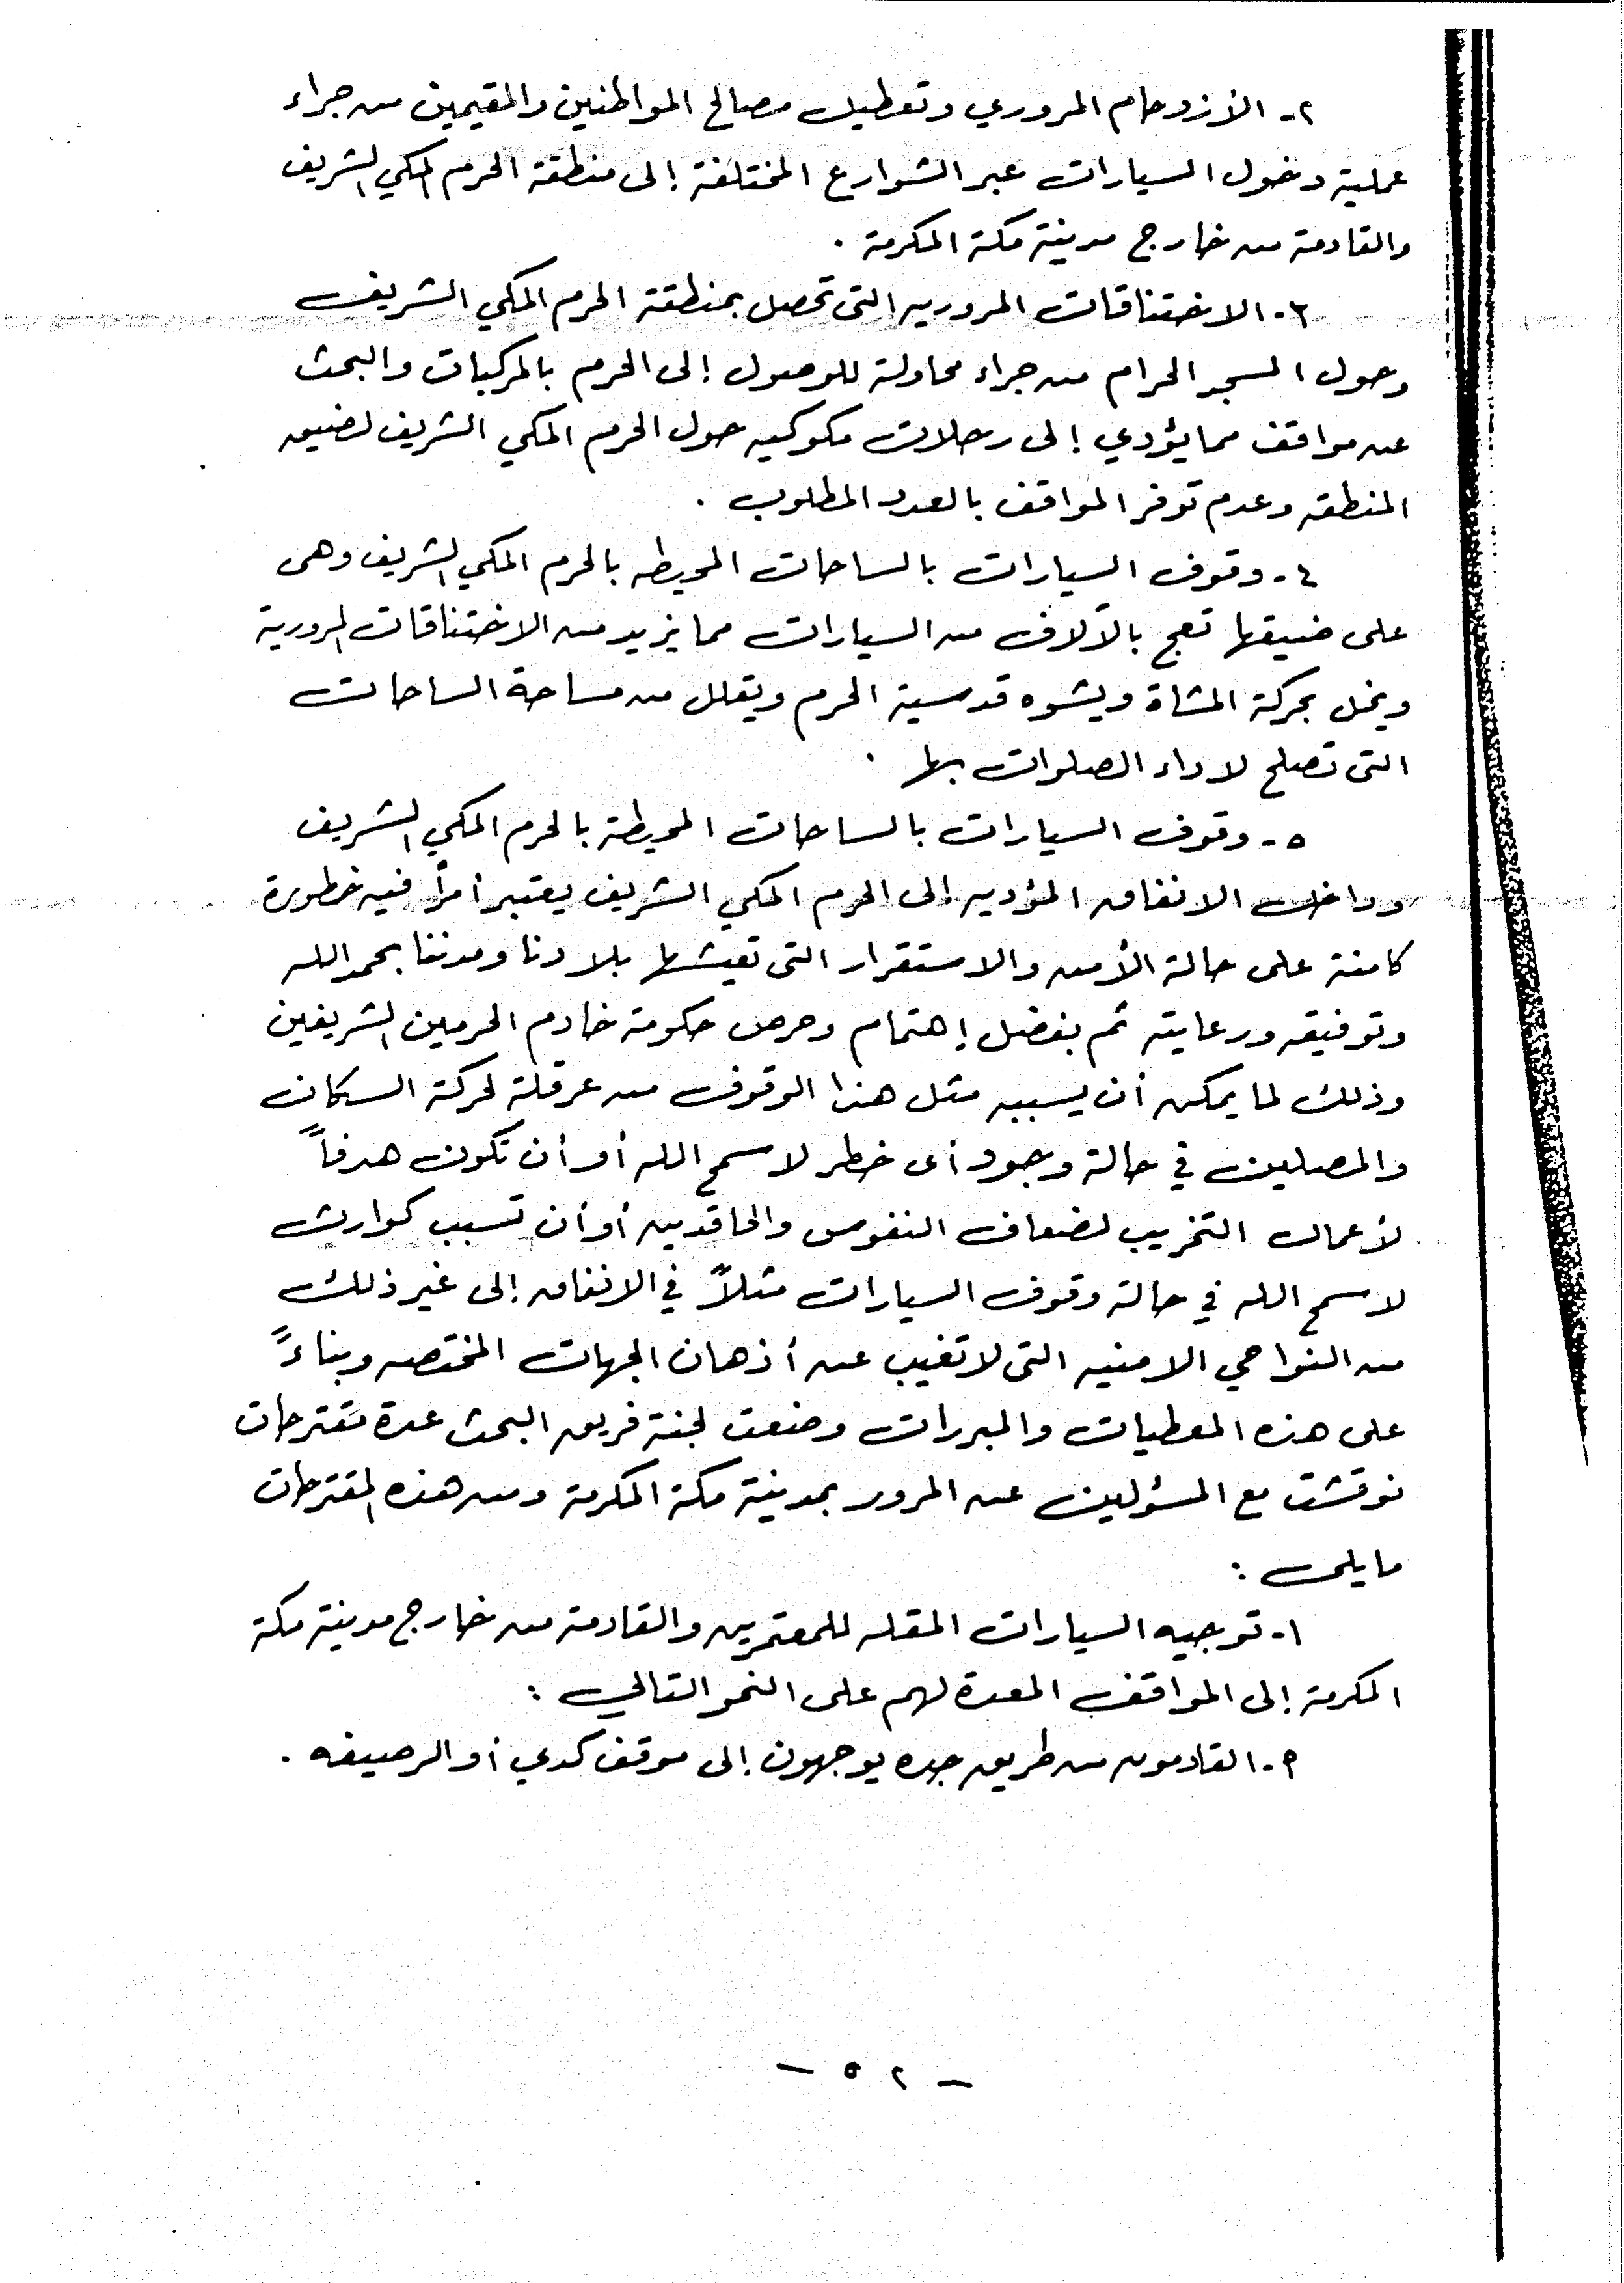 ٢- الأزدحام المروري وتعطيل مصالح المواطنين والمقيمين من جراء
عملية دخول السيارات عبر الشوارع المختلفة إلى منطقة الحرم المكي الشريف
والقادمة من خارج مدينة مكة المكرمة .
٣- الاختناقات المروريه التى تحصل بمنطقة الحرم المكي الشريف
وحول المسجد الحرام من جراء محاولة للوصول إلى الحرم بالمركبات والبحث
عن مواقف مما يؤدي إلى رحلات مكوكيه حول الحرم المكي الشريف لضيق
المنطقه وعدم توفر المواقف بالعدد المطلوب .
٤- وقوف السيارات بالساحات المحيطه بالحرم المكي الشريف وهى
على ضيقها تعج بالآلاف من السيارات مما يزيد من الاختناقات المرورية
ويخل بحركة المشاة ويشوه قدسية الحرم ويقلل من مساحة الساحات
التى تصلح لاداء الصلوات بها .
٥- وقوف السيارات بالساحات المحيطة بالحرم المكي الشريف
وداخل الانفاق المؤديه إلى الحرم المكي الشريف يعتبر أمراً فيه خطورة
كامنة على حالة الأمن والاستقرار التى تعيشها بلادنا ومدننا بحمد الله
وتوفيقه ورعايته ثم بفضل إهتمام وحرص حكومة خادم الحرمين الشريفين
وذلك لما يمكن أن يسببه مثل هذا الوقوف من عرقلة لحركة السكان
والمصلين في حالة وجود أى خطر لا سمح الله أو أن تكون هدفاً
لأعمال التخريب لضعاف النفوس والحاقدين أو أن تسبب كوارث
لا سمح الله في حالة وقوف السيارات مثلاً في الانفاق إلى غير ذلك
من النواحي الامنيه التى لا تغيب عن أذهان الجهات المختصه وبناءً
على هذه المعطيات والمبررات وضعت لجنة فريق البحث عدة مقترحات
نوقشت مع المسؤلين عن المرور بمدينة مكة المكرمة ومن هذه المقترحات
مايلى :
١- توجيه السيارات المقله للمعتمرين والقادمة من خارج مدينة مكة
المكرمة إلى المواقف المعدة لهم على النحو التالي :
٩- القادمون من طريق جده يوجهون إلى موقف كدي أو الرصيفه .
- ٥٢ -